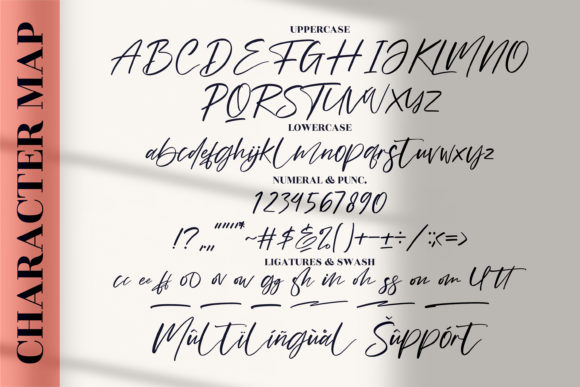 CHARACTER MAP
UPPERCASE
ABCDEFGHIJKLMNO
PQRSTUVWXYZ
LOWERCASE
abcdefghijklmnopqrstuvwxyz
NUMERAL & PUNC.
1234567890
!?.,,"""'* ~#$&%()+-±÷/:;<=>
LIGATURES & SWASH
cc ee ff oo ov ow gg sh in oh ss on om ll tt
Mûltïlíñgùål Šûppórt